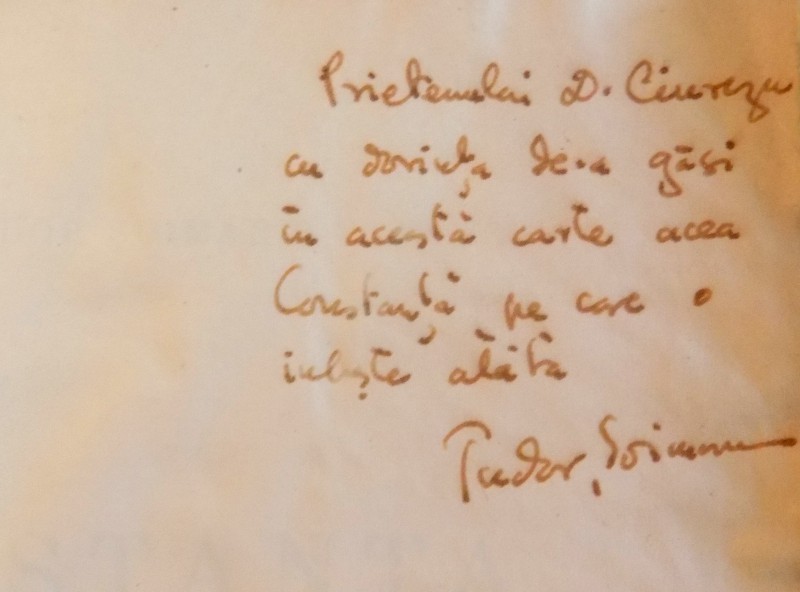 Prietenului D. Ciurezu
cu dorința de-a găsi
în această carte acea
Constanță pe care o
iubește atâta
Tudor Șoimaru